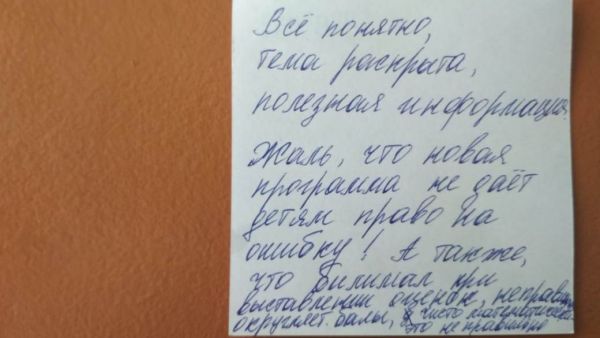 Всё понятно,
тема раскрыта,
полезная информация.
Жаль, что новая
программа не даёт
детям право на
ошибку! А также,
что билимал при
выставлении оценок, неправильно
округляет балы, чисто математически
это неправильно